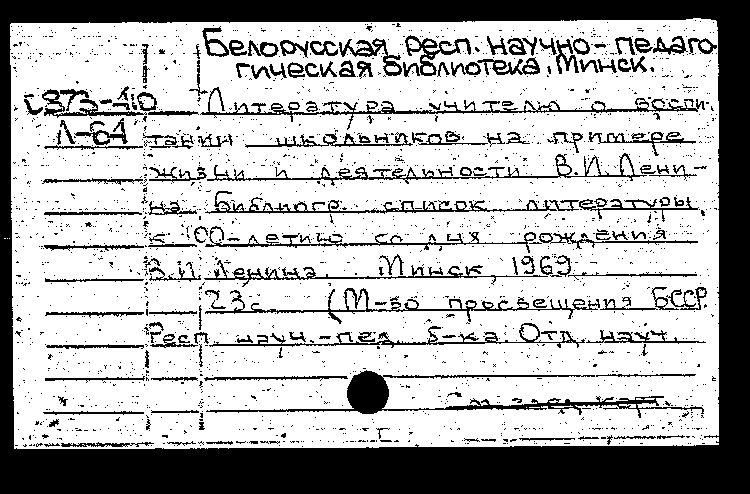 Белорусская респ. научно-педаго
гическая библиотека, Минск.
С373-410 Литература учителю о воспи-
Л-64 тании школьников на примере
жизни и деятельности В.И.Лени-
на Библиогр. список литературы
к 100-летию со дня рождения
В.И.Ленина. Минск, 1969.
23с (М-во просвещения БССР
Респ. науч.-пед. б-ка. Отд. науч.
См. след. карт.